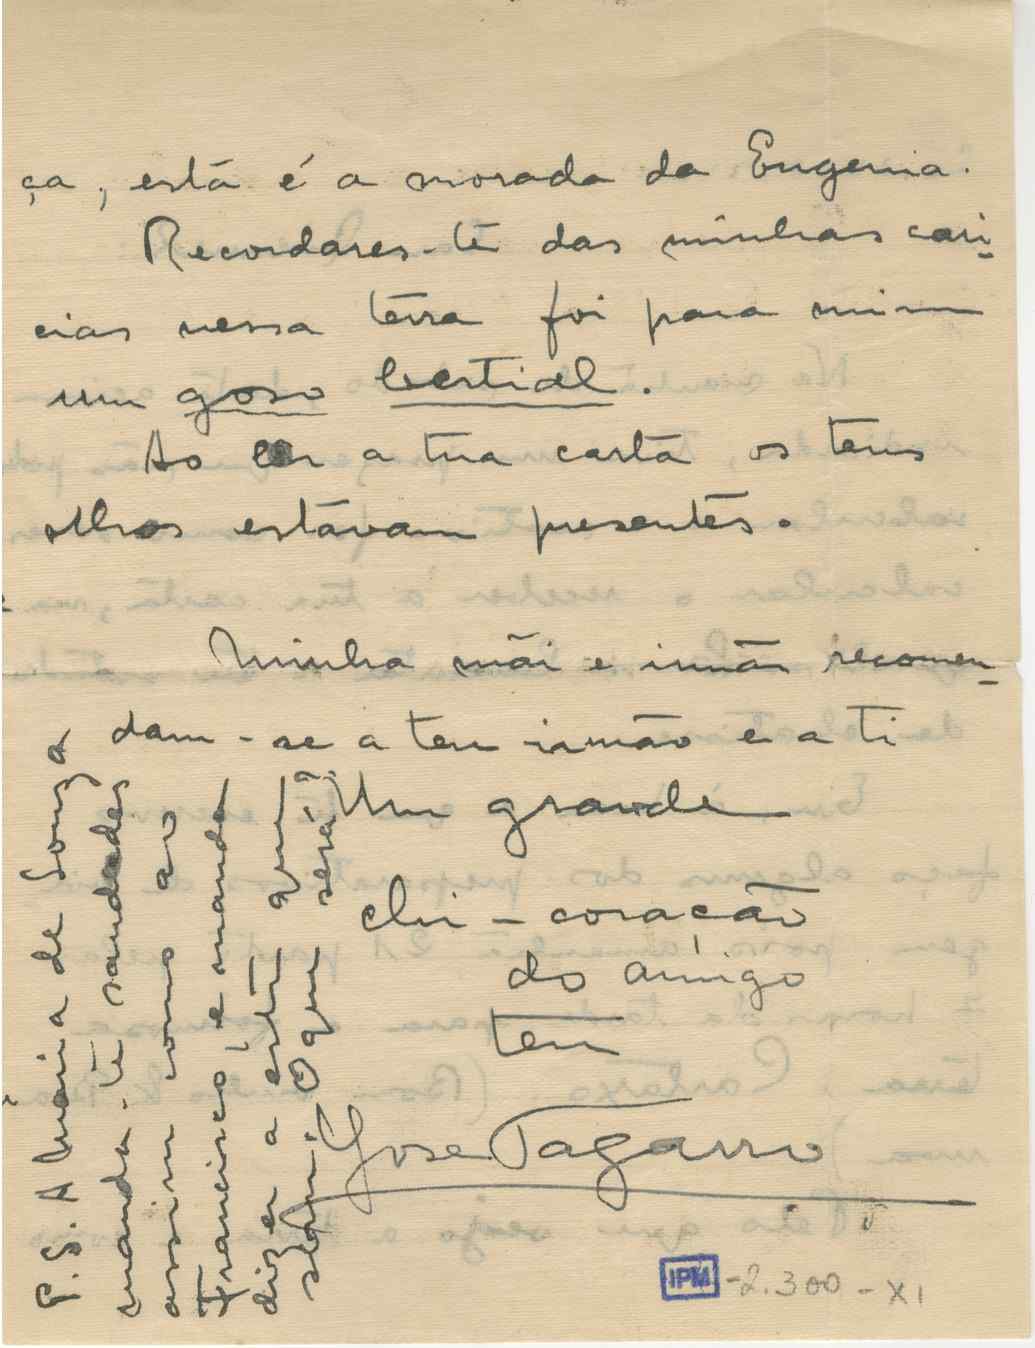 ça, está é a morada da Eugenia.
Recordares-te das minhas cari-
cias nessa terra foi para mim
um goso bestial.
Ao ler a tua carta os teus
olhos estavam presentes.
Minha mãi e irmãs recomen-
dam-se a teu irmão e a ti
Um grande
chi-coração
do amigo
teu
José Tagarro
P.S. A Maria de Souza
manda-te saudades
assim como ao
Francisco, e manda
dizer a este que
slam. O que será?
IPM -2.300-XI